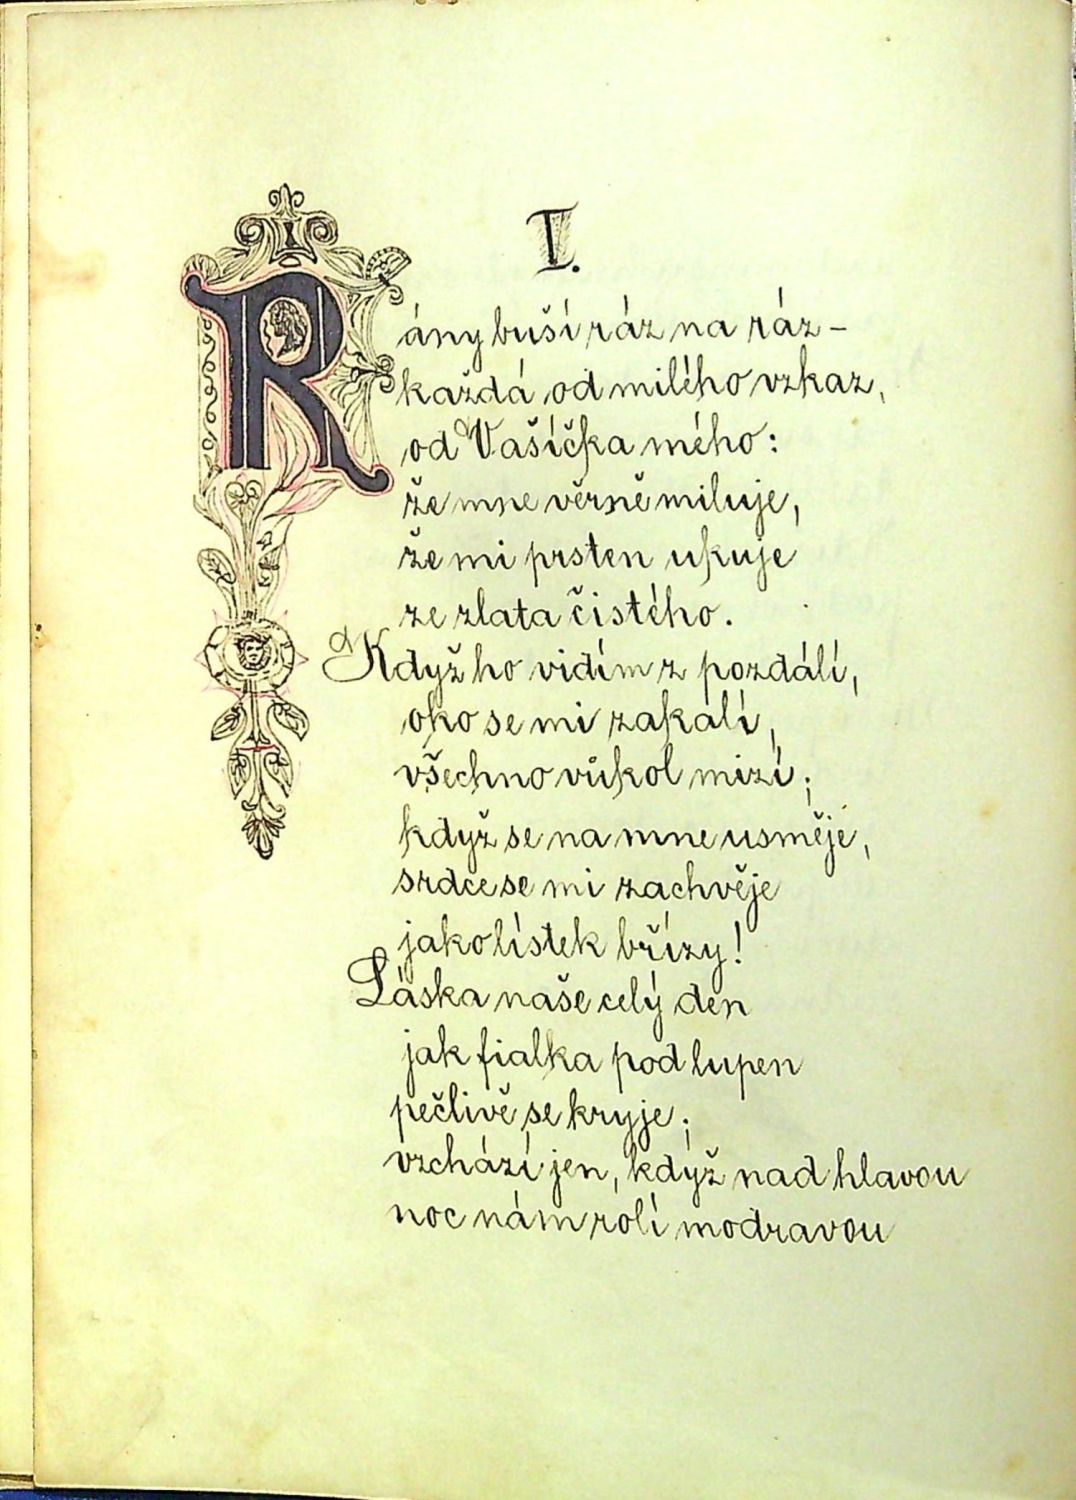 I.
Rány buší ráz na ráz –
každá od milého vzkaz,
od Vašíčka mého:
že mne věrně miluje,
že mi prsten ukuje
ze zlata čistého.
Když ho vidím z pozdálí,
oko se mi zakalí,
všechno vůkol mizí;
když se na mne usměje,
srdce se mi zachvěje
jako lístek břízy!
Láska naše celý den
jak fialka pod lupen
pečlivě se kryje;
vzchází jen, když nad hlavou
noc nám rolí modravou